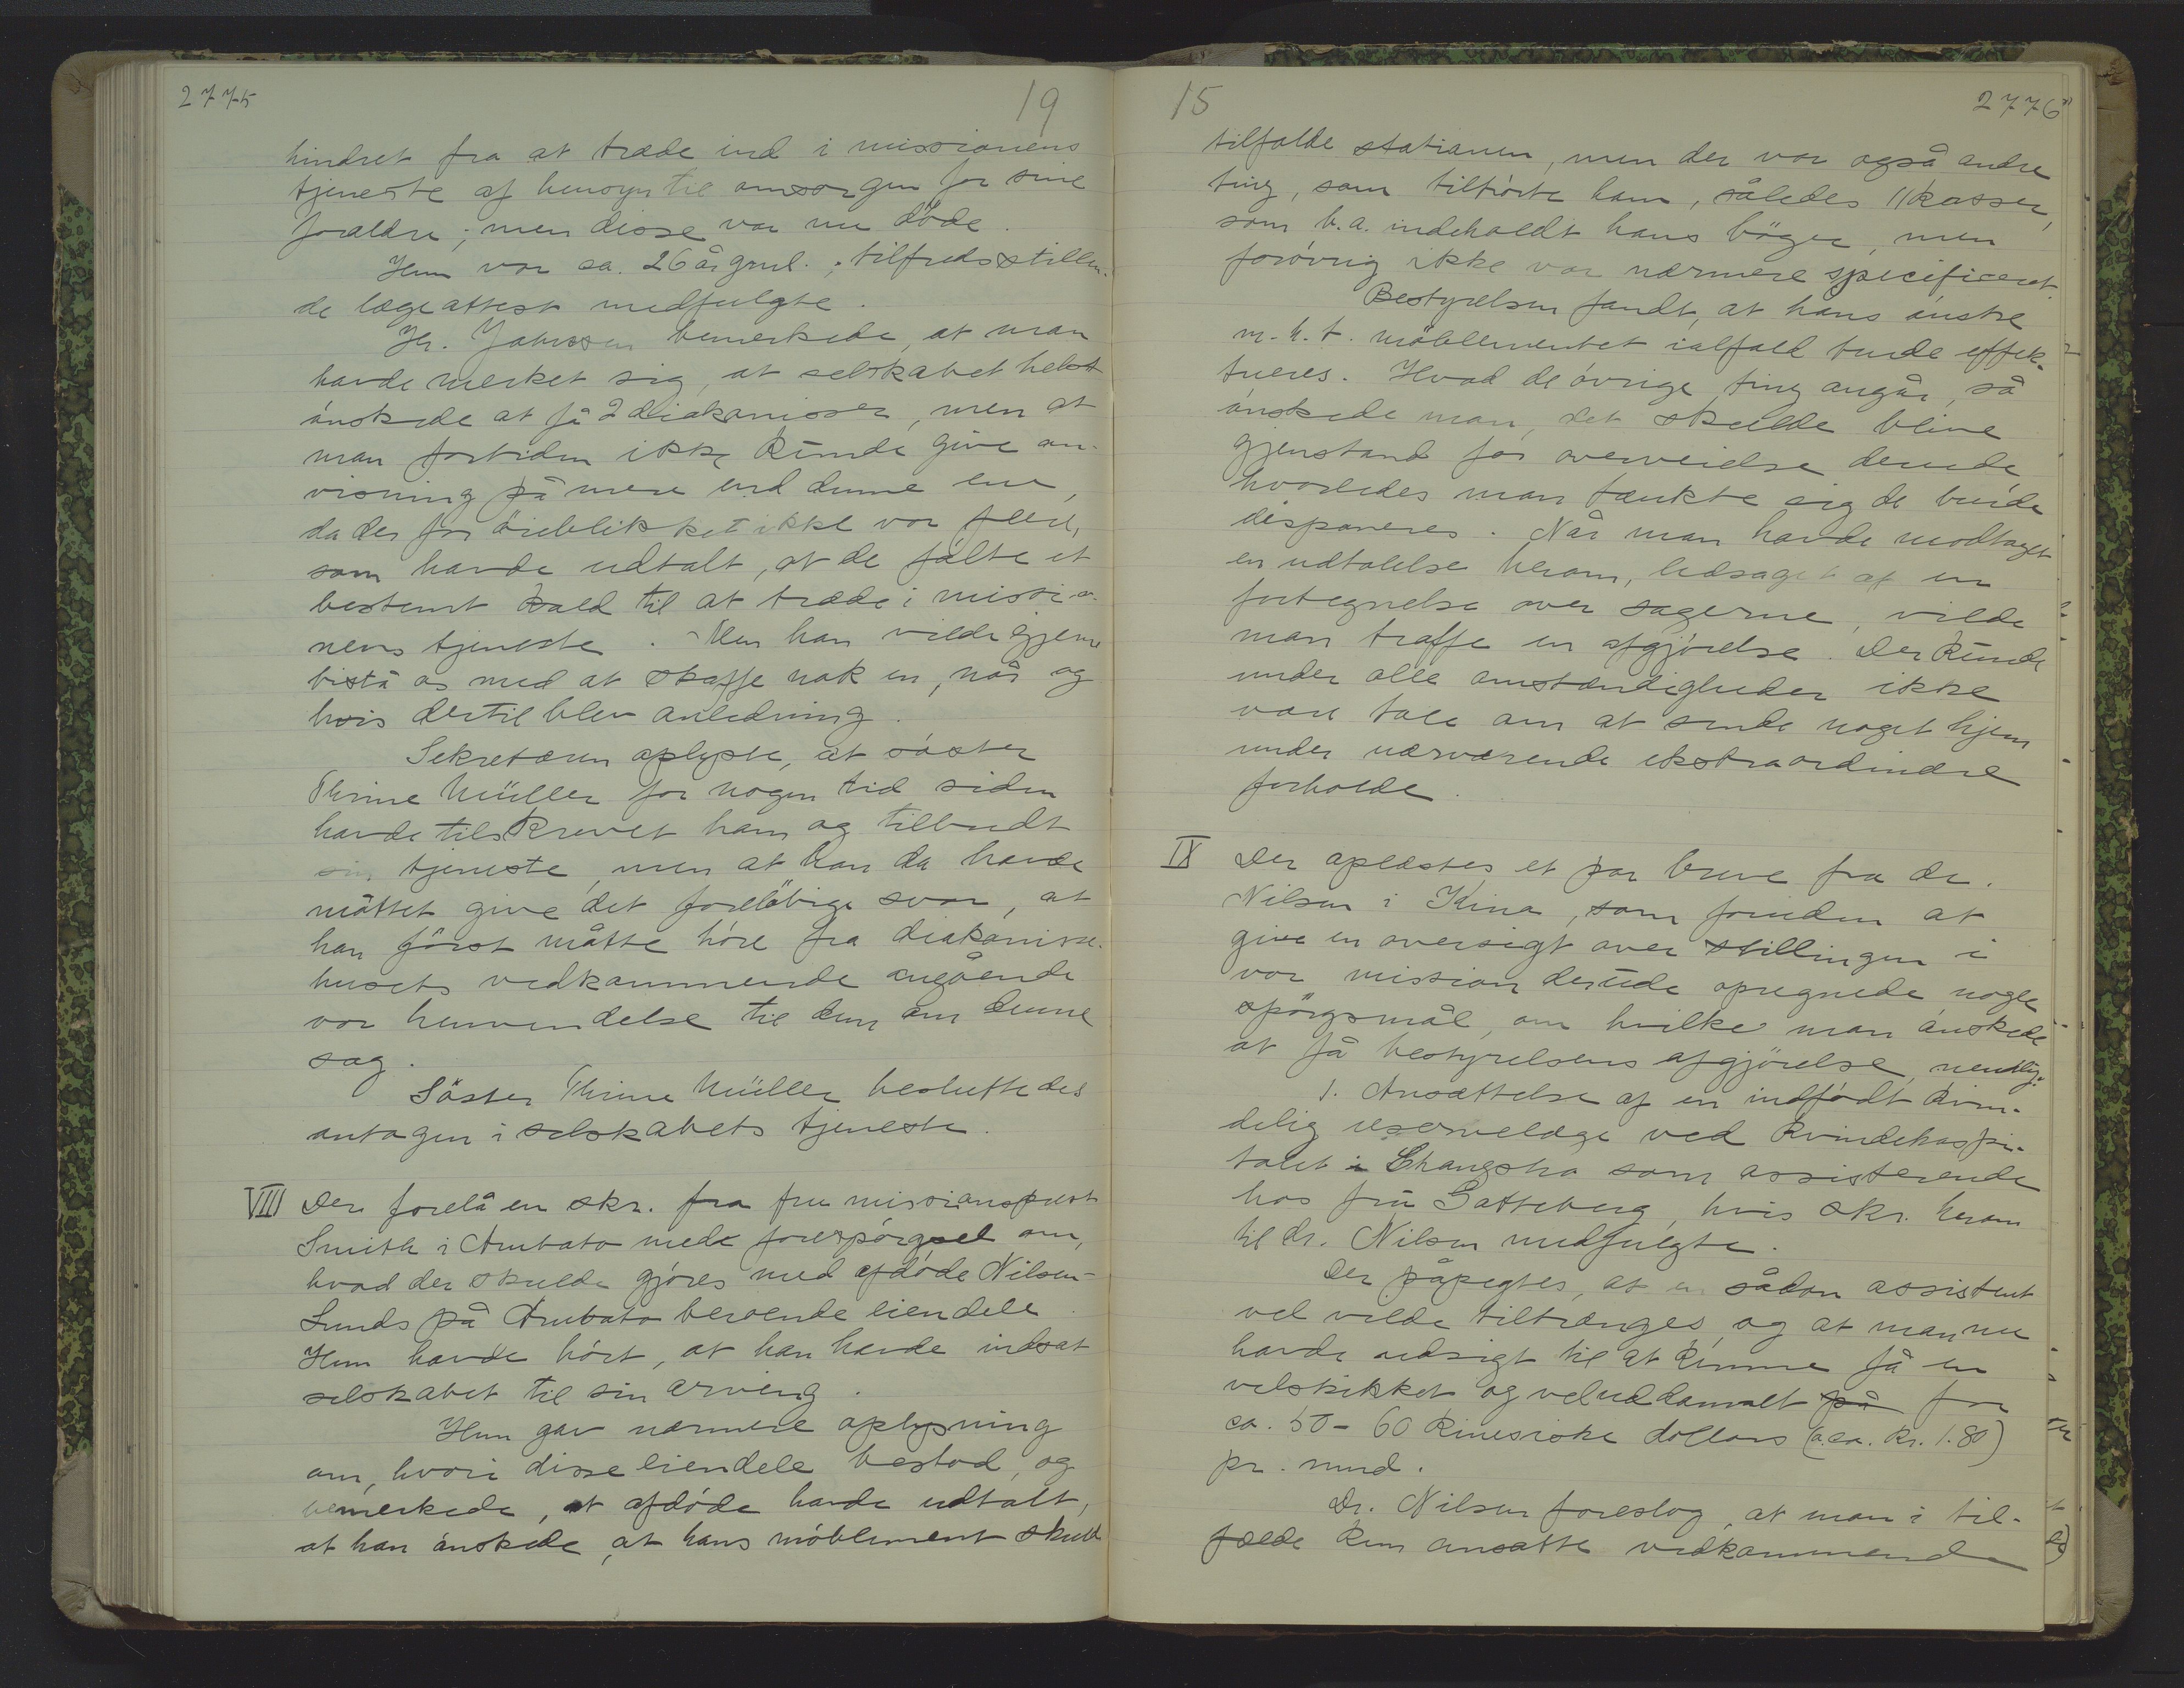 2775
19
hindret fra at træde ind i missionens
tjeneste af hensyn til omsorgen for sine
forældre; men disse var nu døde.
Hun var ca. 26 år gml.; tilfredsstillen-
de lægeattest medfulgte.
Hr. Johnssen bemerkede, at man
havde merket sig, at selskabet helst
ønskede at få 2 diakonisser, men at
man fortiden ikke kunde give an-
visning på mere end denne ene,
da der for øieblikket ikke var flere,
som havde udtalt, at de følte et
bestemt kald til at træde i missio-
nens tjeneste. Men han vilde gjerne
bistå os med at skaffe nok en, når og
hvis dertil blev anledning.
Sekretæren oplyste, at søster
Thrine Müller for nogen tid siden
havde tilskrevet ham og tilbudt
sin tjeneste, men at han da havde
måttet give det foreløbige svar, at
han først måtte høre fra diakonisse-
husets vedkommende angående
vor henvendelse til dem om denne
sag.
Søster Thrine Müller besluttedes
antagen i selskabets tjeneste.
VIII Der forelå en skr. fra fru missionsprest
Smith i Ambato med forespørgsel om,
hvad der skulde gjøres med afdøde Nilsen-
Lunds på Ambato beroende eiendele.
Hun havde hørt, at han havde indsat
selskabet til sin arving.
Hun gav nærmere oplysning
om, hvori disse eiendele bestod, og
bemerkede, at afdøde havde udtalt,
at han ønskede, at hans møblement skulde
15
2776
tilfalde stationen, men der var også andre
ting, som tilhørte ham, således 11 kasser,
som b.a. indeholdt hans bøger, men
forøvrig ikke var nærmere specificeret.
Bestyrelsen fandt, at hans ønske
m.h.t. møblementet ialfald burde effek-
tueres. Hvad de øvrige ting angår, så
ønskede man, det skulde blive
gjenstand for overveielse derude,
hvorledes man tænkte sig de burde
disponeres. Når man havde modtaget
en udtalelse herom, ledsaget af en
fortegnelse over sagerne, vilde
man træffe en afgjørelse. Der kunde
under alle omstændigheder ikke
være tale om at sende noget hjem
under nærværende ekstraordinære
forholde.
IX Der oplæstes et par breve fra dr.
Nilsen i Kina, som foruden at
give en oversigt over stillingen i
vor mission derude opregnede nogle
spørgsmål, om hvilke man ønskede
at få bestyrelsens afgjørelse, nemlig:
1. Ansættelse af en indfødt kvin-
delig reservelæge ved kvindehospi-
talet i Changsha som assisterende
hos fru Gotteberg, hvis skr. herom
til dr. Nilsen medfulgte.
Der påpegtes, at en sådan assistent
vel vilde tiltrænges, og at man nu
havde udsigt til at kunne få en
velskikket og veluddannet på for
ca. 50-60 kinesiske dollars (a ca. kr. 1.80)
pr. mnd.
Dr. Nilsen foreslog, at man i til-
fælde kun ansatte vedkommende